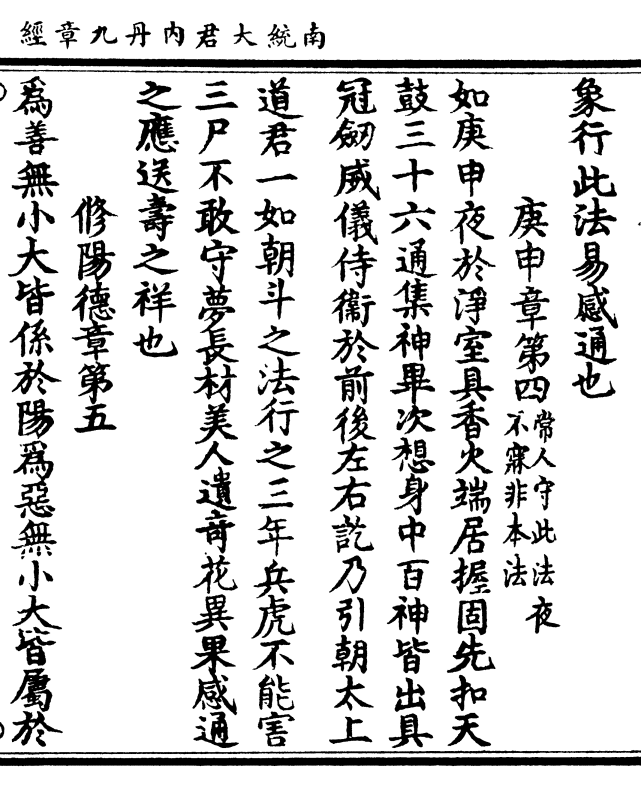 南統大君內丹九章經
象行此法易感通也
庚申章第四常人守此法夜不寐非本法
如庚申夜於淨室具香火端居握固先扣天
鼓三十六通集神畢次想身中百神皆出具
冠劒威儀侍衞於前後左右訖乃引朝太上
道君一如朝斗之法行之三年兵虎不能害
三尸不敢守夢長材美人遺奇花異果感通
之應送壽之祥也
修陽德章第五
爲善無小大皆係於陽爲惡無小大皆屬於